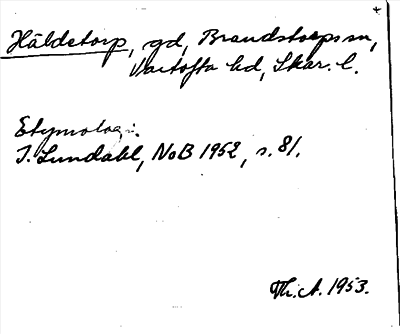 Häldetorp, gd, Brandstorps sn,
Vartofta hd, Skar. l.
Etymologi:
I. Lundahl, NoB 1952, s. 81.
Th. A. 1953.